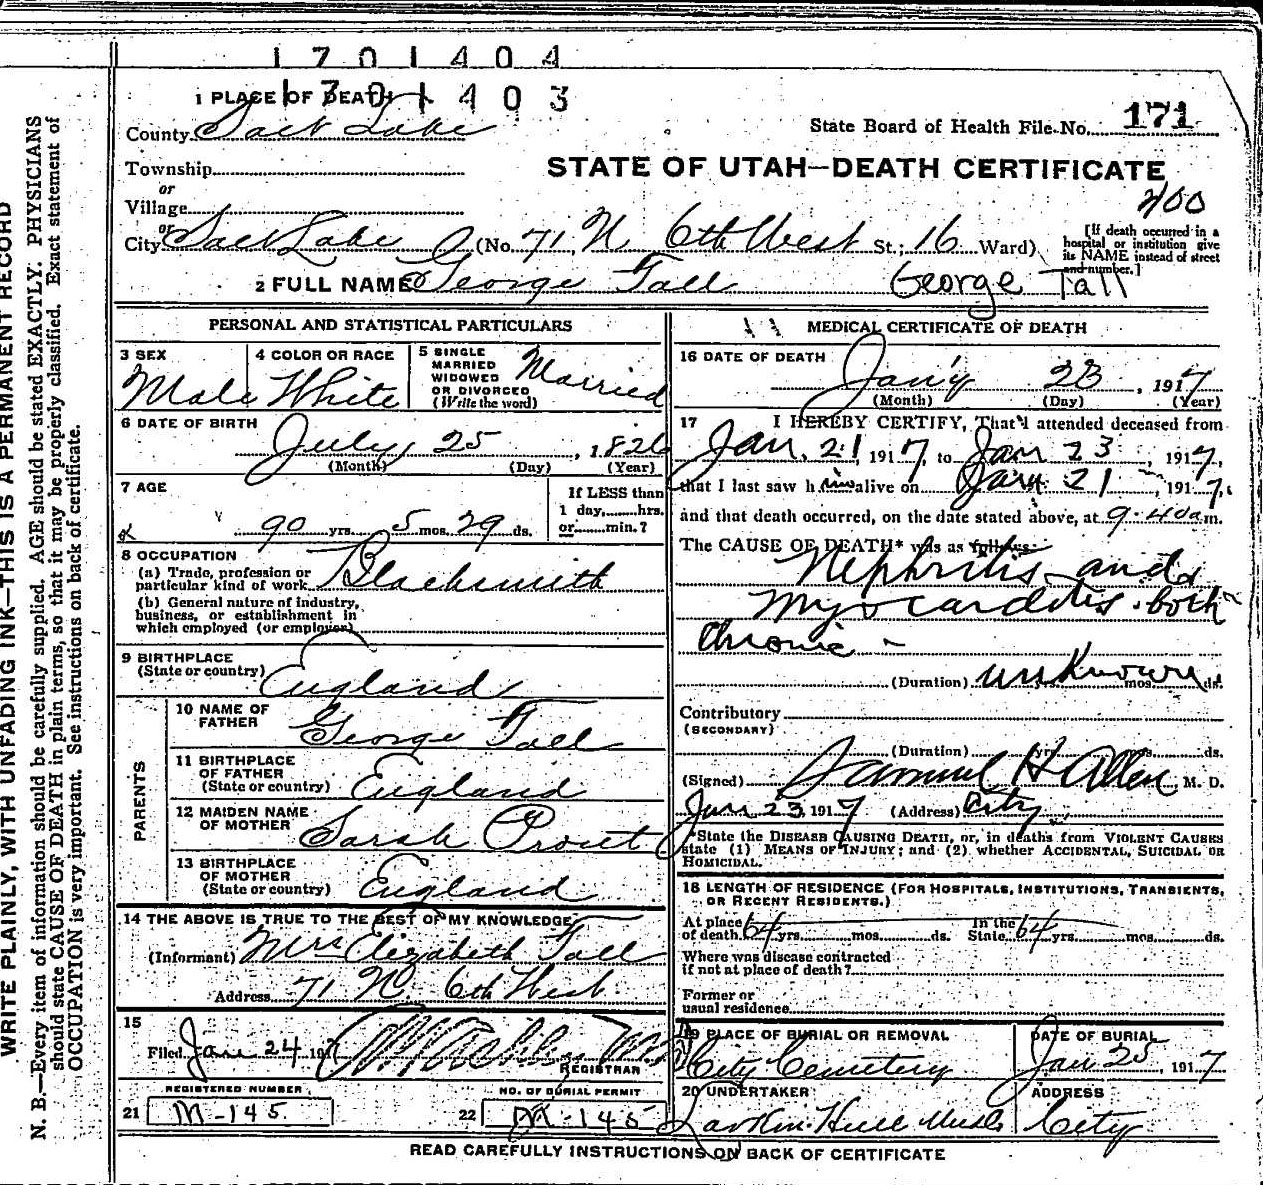 1701404
1701403
1 PLACE OF DEATH
County Salt Lake
State Board of Health File No. 171
Township
or
Village
or
STATE OF UTAH—DEATH CERTIFICATE
400
City Salt Lake (No. 71 N 6th West St.; 16 Ward)
[If death occurred in a hospital or institution give its NAME instead of street and number.]
2 FULL NAME George Tall George Tall
PERSONAL AND STATISTICAL PARTICULARS
3 SEX Male
4 COLOR OR RACE White
5 SINGLE MARRIED WIDOWED OR DIVORCED (Write the word) Married
6 DATE OF BIRTH
July 25, 1826
(Month) (Day) (Year)
7 AGE
90 yrs. 5 mos. 29 ds.
If LESS than 1 day, hrs. or min.?
8 OCCUPATION
(a) Trade, profession or particular kind of work Blacksmith
(b) General nature of industry, business, or establishment in which employed (or employer)
9 BIRTHPLACE
(State or country) England
PARENTS
10 NAME OF FATHER George Tall
11 BIRTHPLACE OF FATHER (State or country) England
12 MAIDEN NAME OF MOTHER Sarah Prout
13 BIRTHPLACE OF MOTHER (State or country) England
14 THE ABOVE IS TRUE TO THE BEST OF MY KNOWLEDGE
(Informant) Mrs Elizabeth Tall
Address 71 N. 6th West
15
Filed Jan 24 1917
REGISTRAR
REGISTERED NUMBER
21 M-145
NO. OF BURIAL PERMIT
22 M-145
MEDICAL CERTIFICATE OF DEATH
16 DATE OF DEATH
Jan'y 23, 1917
(Month) (Day) (Year)
17 I HEREBY CERTIFY, That I attended deceased from
Jan. 21 1917, to Jan 23, 1917,
that I last saw him alive on Jan 21, 1917,
and that death occurred, on the date stated above, at 9.40 a m.
The CAUSE OF DEATH* was as follows:
Nephritis and
Myocarditis. both
Chronic -
(Duration) unknown yrs. mos. ds.
Contributory
(SECONDARY)
(Duration) yrs. mos. ds.
(Signed) Samuel H Allen M. D.
Jan 23, 1917 (Address) City
*State the DISEASE CAUSING DEATH, or, in deaths from VIOLENT CAUSES
state (1) MEANS OF INJURY; and (2) whether ACCIDENTAL, SUICIDAL OR
HOMICIDAL.
18 LENGTH OF RESIDENCE (FOR HOSPITALS, INSTITUTIONS, TRANSIENTS,
OR RECENT RESIDENTS.)
At place of death 64 yrs. mos. ds. In the State 64 yrs. mos. ds.
Where was disease contracted
if not at place of death?
Former or
usual residence
19 PLACE OF BURIAL OR REMOVAL
City Cemetery
DATE OF BURIAL
Jan 25, 1917
20 UNDERTAKER
Larkin Hull
ADDRESS
City
READ CAREFULLY INSTRUCTIONS ON BACK OF CERTIFICATE
WRITE PLAINLY, WITH UNFADING INK—THIS IS A PERMANENT RECORD
N. B.—Every item of information should be carefully supplied. AGE should be stated EXACTLY. PHYSICIANS
should state CAUSE OF DEATH in plain terms, so that it may be properly classified. Exact statement of
OCCUPATION is very important. See instructions on back of certificate.